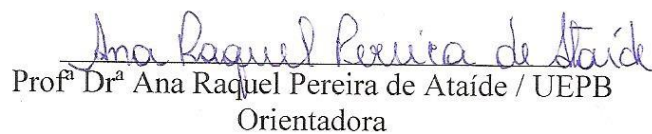 Ana Raquel Pereira de Ataíde
Profª Drª Ana Raquel Pereira de Ataíde / UEPB
Orientadora